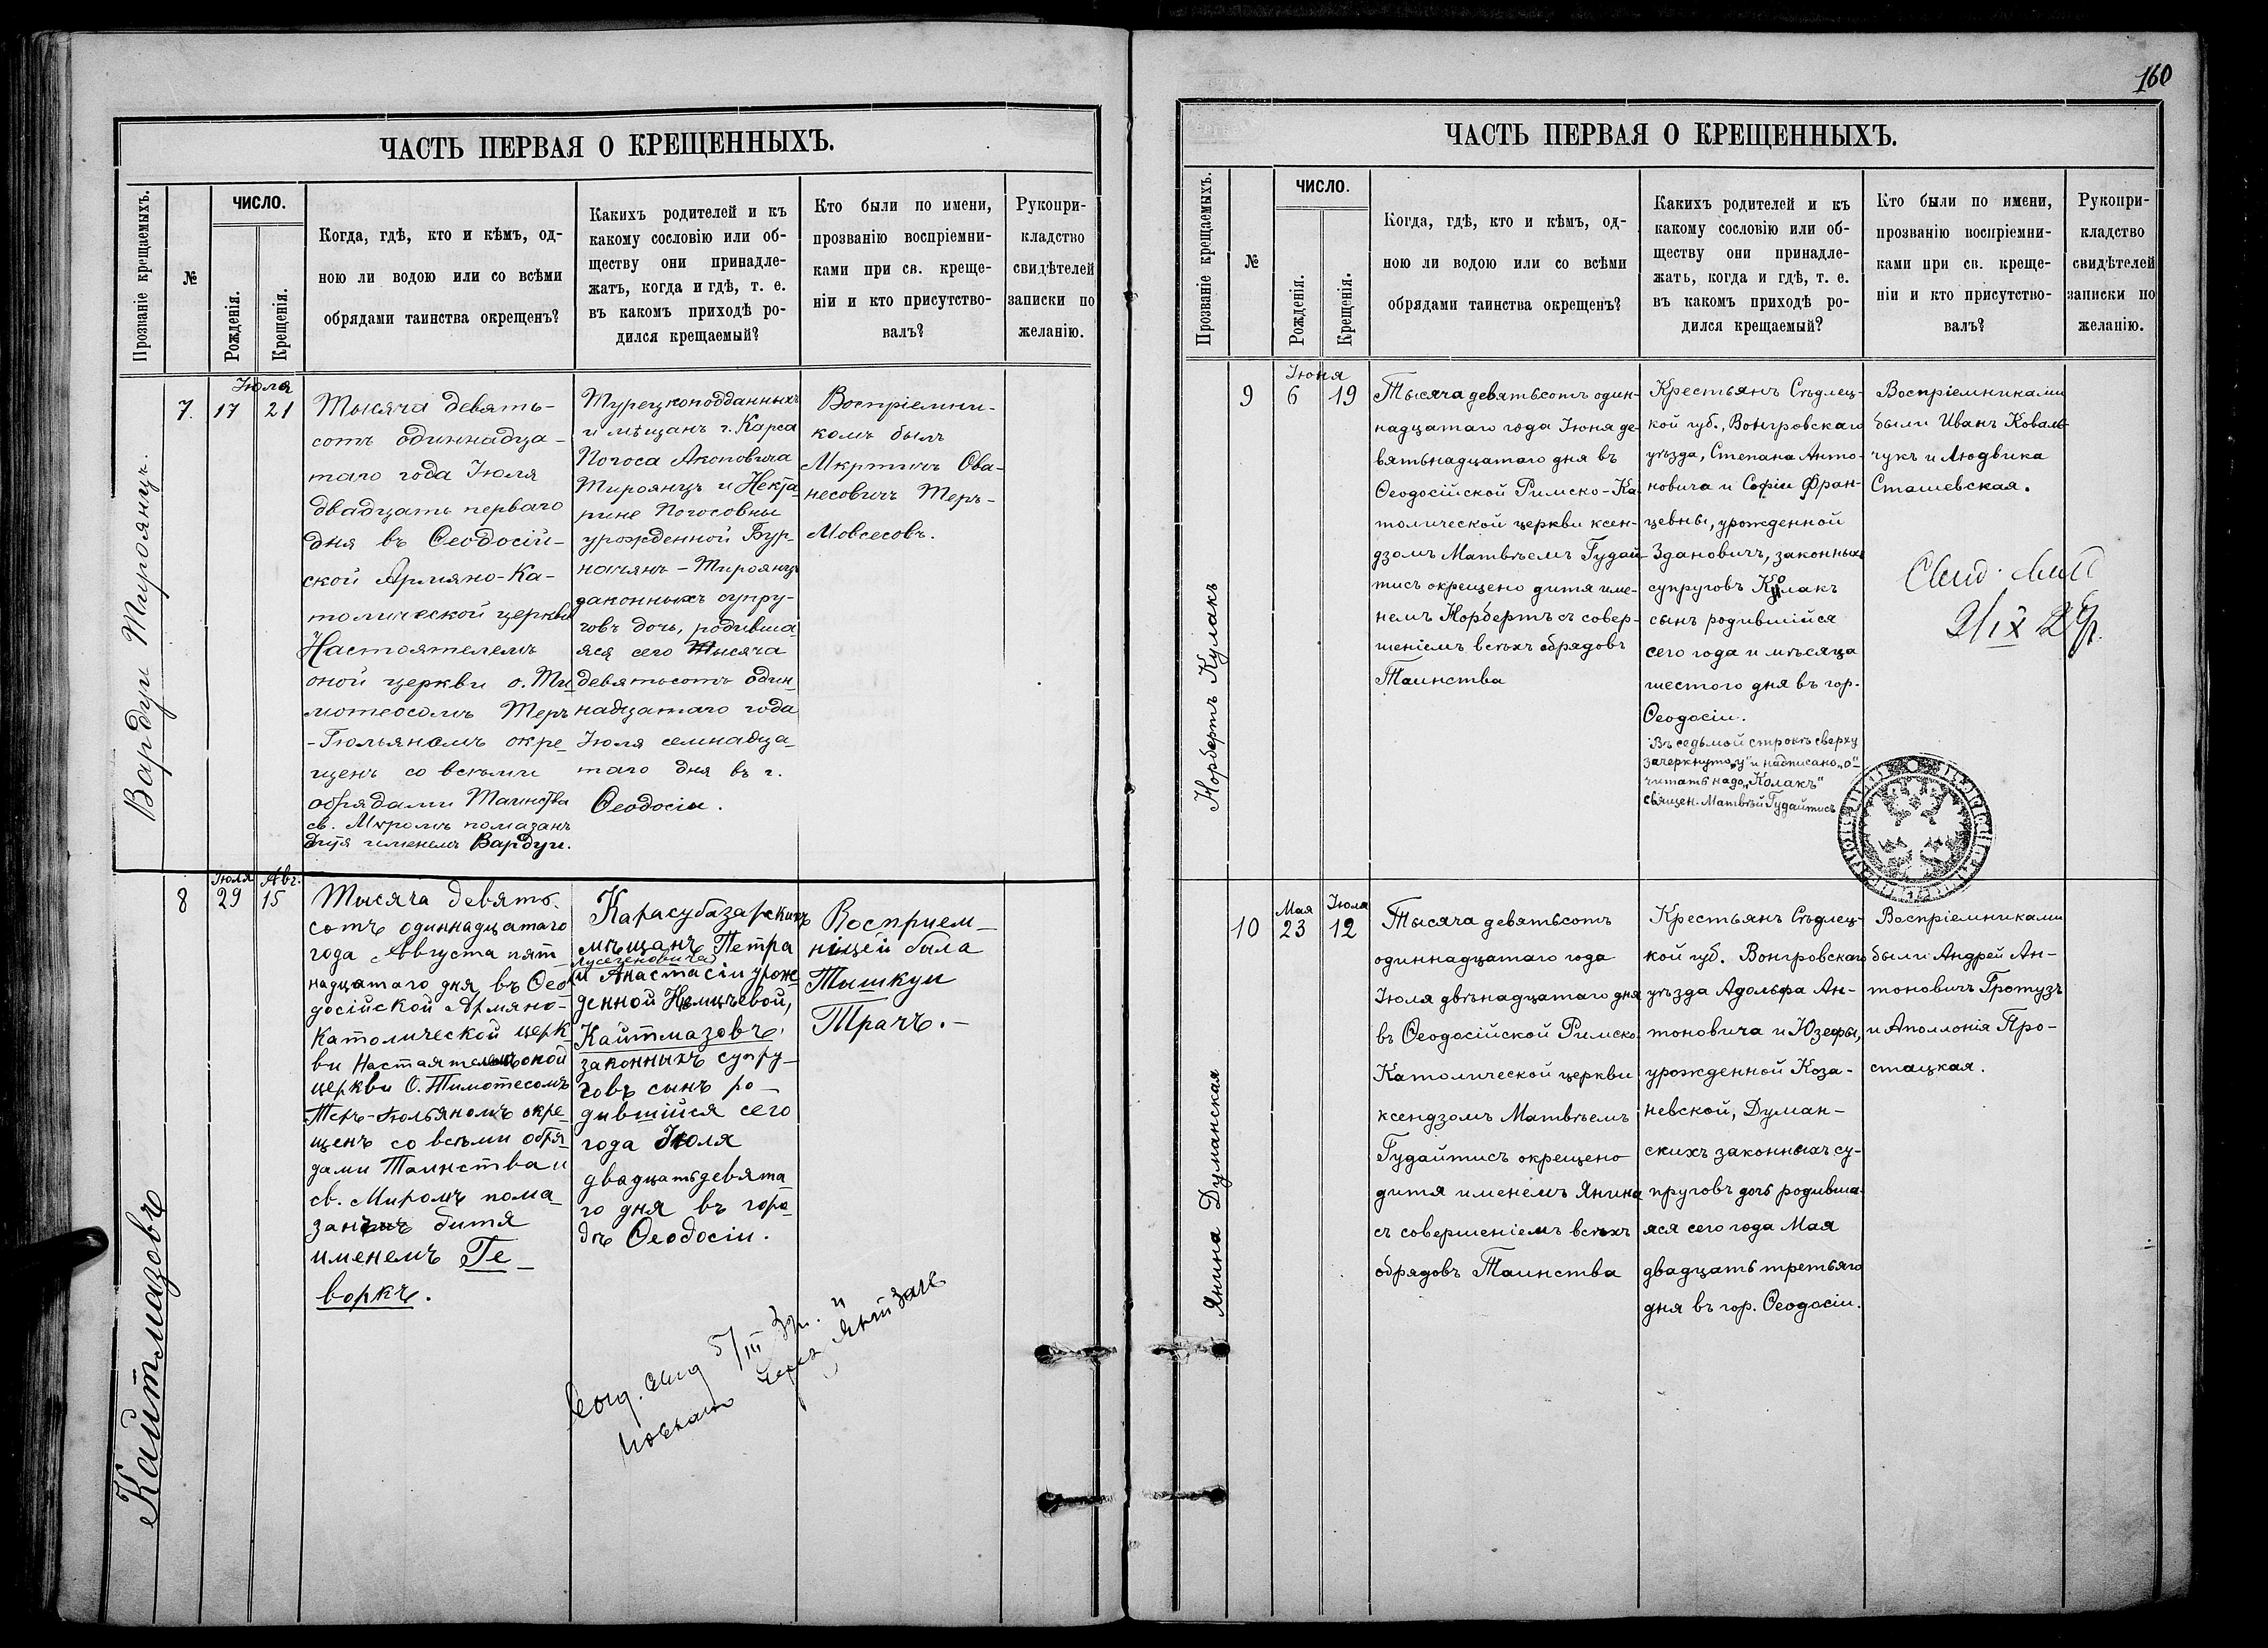 ЧАСТЬ ПЕРВАЯ О КРЕЩЕННЫХЪ.
Прозваніе крещаемыхъ.
№
ЧИСЛО.
Рожденія.
Крещенія.
Когда, гдѣ, кто и кѣмъ, од-
ною ли водою или со всѣми
обрядами таинства окрещенъ?
Какихъ родителей и къ
какому сословію или об-
ществу они принадле-
жать, когда и гдѣ, т. е.
въ какомъ приходѣ ро-
дился крещаемый?
Кто были по имени,
прозванію воспріемни-
ками при св. креще-
ніи и кто присутство-
валъ?
Рукопри-
кладство
свидѣтелей
записки по
желанію.
Вардуи Мироянцъ.
7.
Іюля
17 21
Тысяча девять-
сотъ одиннадца-
таго года Іюля
двадцать перваго
дня въ Ѳеодосій-
ской Армяно-Ка-
толической церкви
Настоятелемъ
оной церкви о. Ти-
мотеосомъ Теръ
-Гюльяномъ окре-
щенъ со всѣми
обрядами Таинства
св. Мѵромъ помазанъ
дитя именемъ Вардуи.
Турецкоподданныхъ
и мѣщанъ г. Карса
Погоса Акоповича
Мироянцъ и Некта-
рине Погосовны
урожденной Бур-
-Мироянцъ
законныхъ супру-
говъ дочь, родивша
яся сего Тысяча
девятьсотъ один-
надцатаго года
Іюля семнадца-
таго дня въ г.
Ѳеодосіи.
Воспріемни-
комъ былъ
Мкртичъ Ова-
несовичъ Теръ-
Мовсесовъ.
Кайтмазовъ
8
Іюля Авг.
29 15
Тысяча девять-
сотъ одиннадцатаго
года Августа пят-
надцатаго дня въ Ѳео
досійской Армяно-
Католической церк
ви Настаятелемъ оной
церкви О. Тимотесомъ
Теръ-Гюльяномъ окре
щенъ со всѣми обря
дами Таинства и
св. Миромъ пома-
занъ дитя
именемъ Ге-
воркъ.
Карасубазарскихъ
мѣщанъ Петра
Лусегеновича
и Анастасіи урож
денной Немцѣевой,
Кайтмазовъ,
законныхъ супру-
говъ сынъ ро-
дившійся сего
года Іюля
двадцать девята
го дня въ горо-
дѣ Ѳеодосіи.
Восприем-
ницей была
Тишкуи
Трачъ.-
5/III
через
160
ЧАСТЬ ПЕРВАЯ О КРЕЩЕННЫХЪ.
Прозваніе крещаемыхъ.
№
ЧИСЛО.
Рожденія.
Крещенія.
Когда, гдѣ, кто и кѣмъ, од-
ною ли водою или со всѣми
обрядами таинства окрещенъ?
Какихъ родителей и къ
какому сословію или об-
ществу они принадле-
жать, когда и гдѣ, т. е.
въ какомъ приходѣ ро-
дился крещаемый?
Кто были по имени,
прозванію воспріемни-
ками при св. креще-
ніи и кто присутство-
валъ?
Рукопри-
кладство
свидѣтелей
записки по
желанію.
Норбертъ Кулакъ
9
Іюня
6 19
Тысяча девятьсотъ один-
надцатаго года Іюня де-
вятьнадцатаго дня въ
Ѳеодосійской Римско-Ка-
толической церкви ксен-
дзомъ Матвѣемъ Гудай-
тисъ окрещено дитя име-
немъ Норбертъ съ совер-
шеніемъ всѣхъ обрядовъ
Таинства
Крестьянъ Сѣдлец-
кой губ., Вонгровскаго
уѣзда, Степана Анто-
новича и Софіи Фран-
цевны, урожденной
Здановичъ, законныхъ
супруговъ Колакъ
сынъ родившійся
сего года и мѣсяца
шестого дня въ гор.
Ѳеодосіи.
Въ седьмой строкѣ сверху
зачеркнуто „у“ и надписано „о“
читать надо „Колакъ“
священ. Матвѣй Гудайтисъ
Воспріемниками
были Иванъ Коваль-
чукъ и Людвика
Сташевская.
Янина Думанская
10
Мая Іюля
23 12
Тысяча девятьсотъ
одиннадцатаго года
Іюля двѣнадцатаго дня
въ Ѳеодосійской Римско-
Католической церкви
ксендзомъ Матвѣемъ
Гудайтисъ окрещено
дитя именемъ Янина
съ совершеніемъ всѣхъ
обрядовъ Таинства
Крестьянъ Сѣдлец-
кой губ. Вонгровскаго
уѣзда Адольфа Ан-
тоновича и Юзефы,
урожденной Коза-
невской, Думан-
скихъ законныхъ су-
пруговъ дочь родивша-
яся сего года Мая
двадцать третьяго
дня въ гор. Ѳеодосіи.
Воспріемниками
были Андрей Ан-
тоновичъ Гротузъ
и Аполлонія Про-
стацкая.